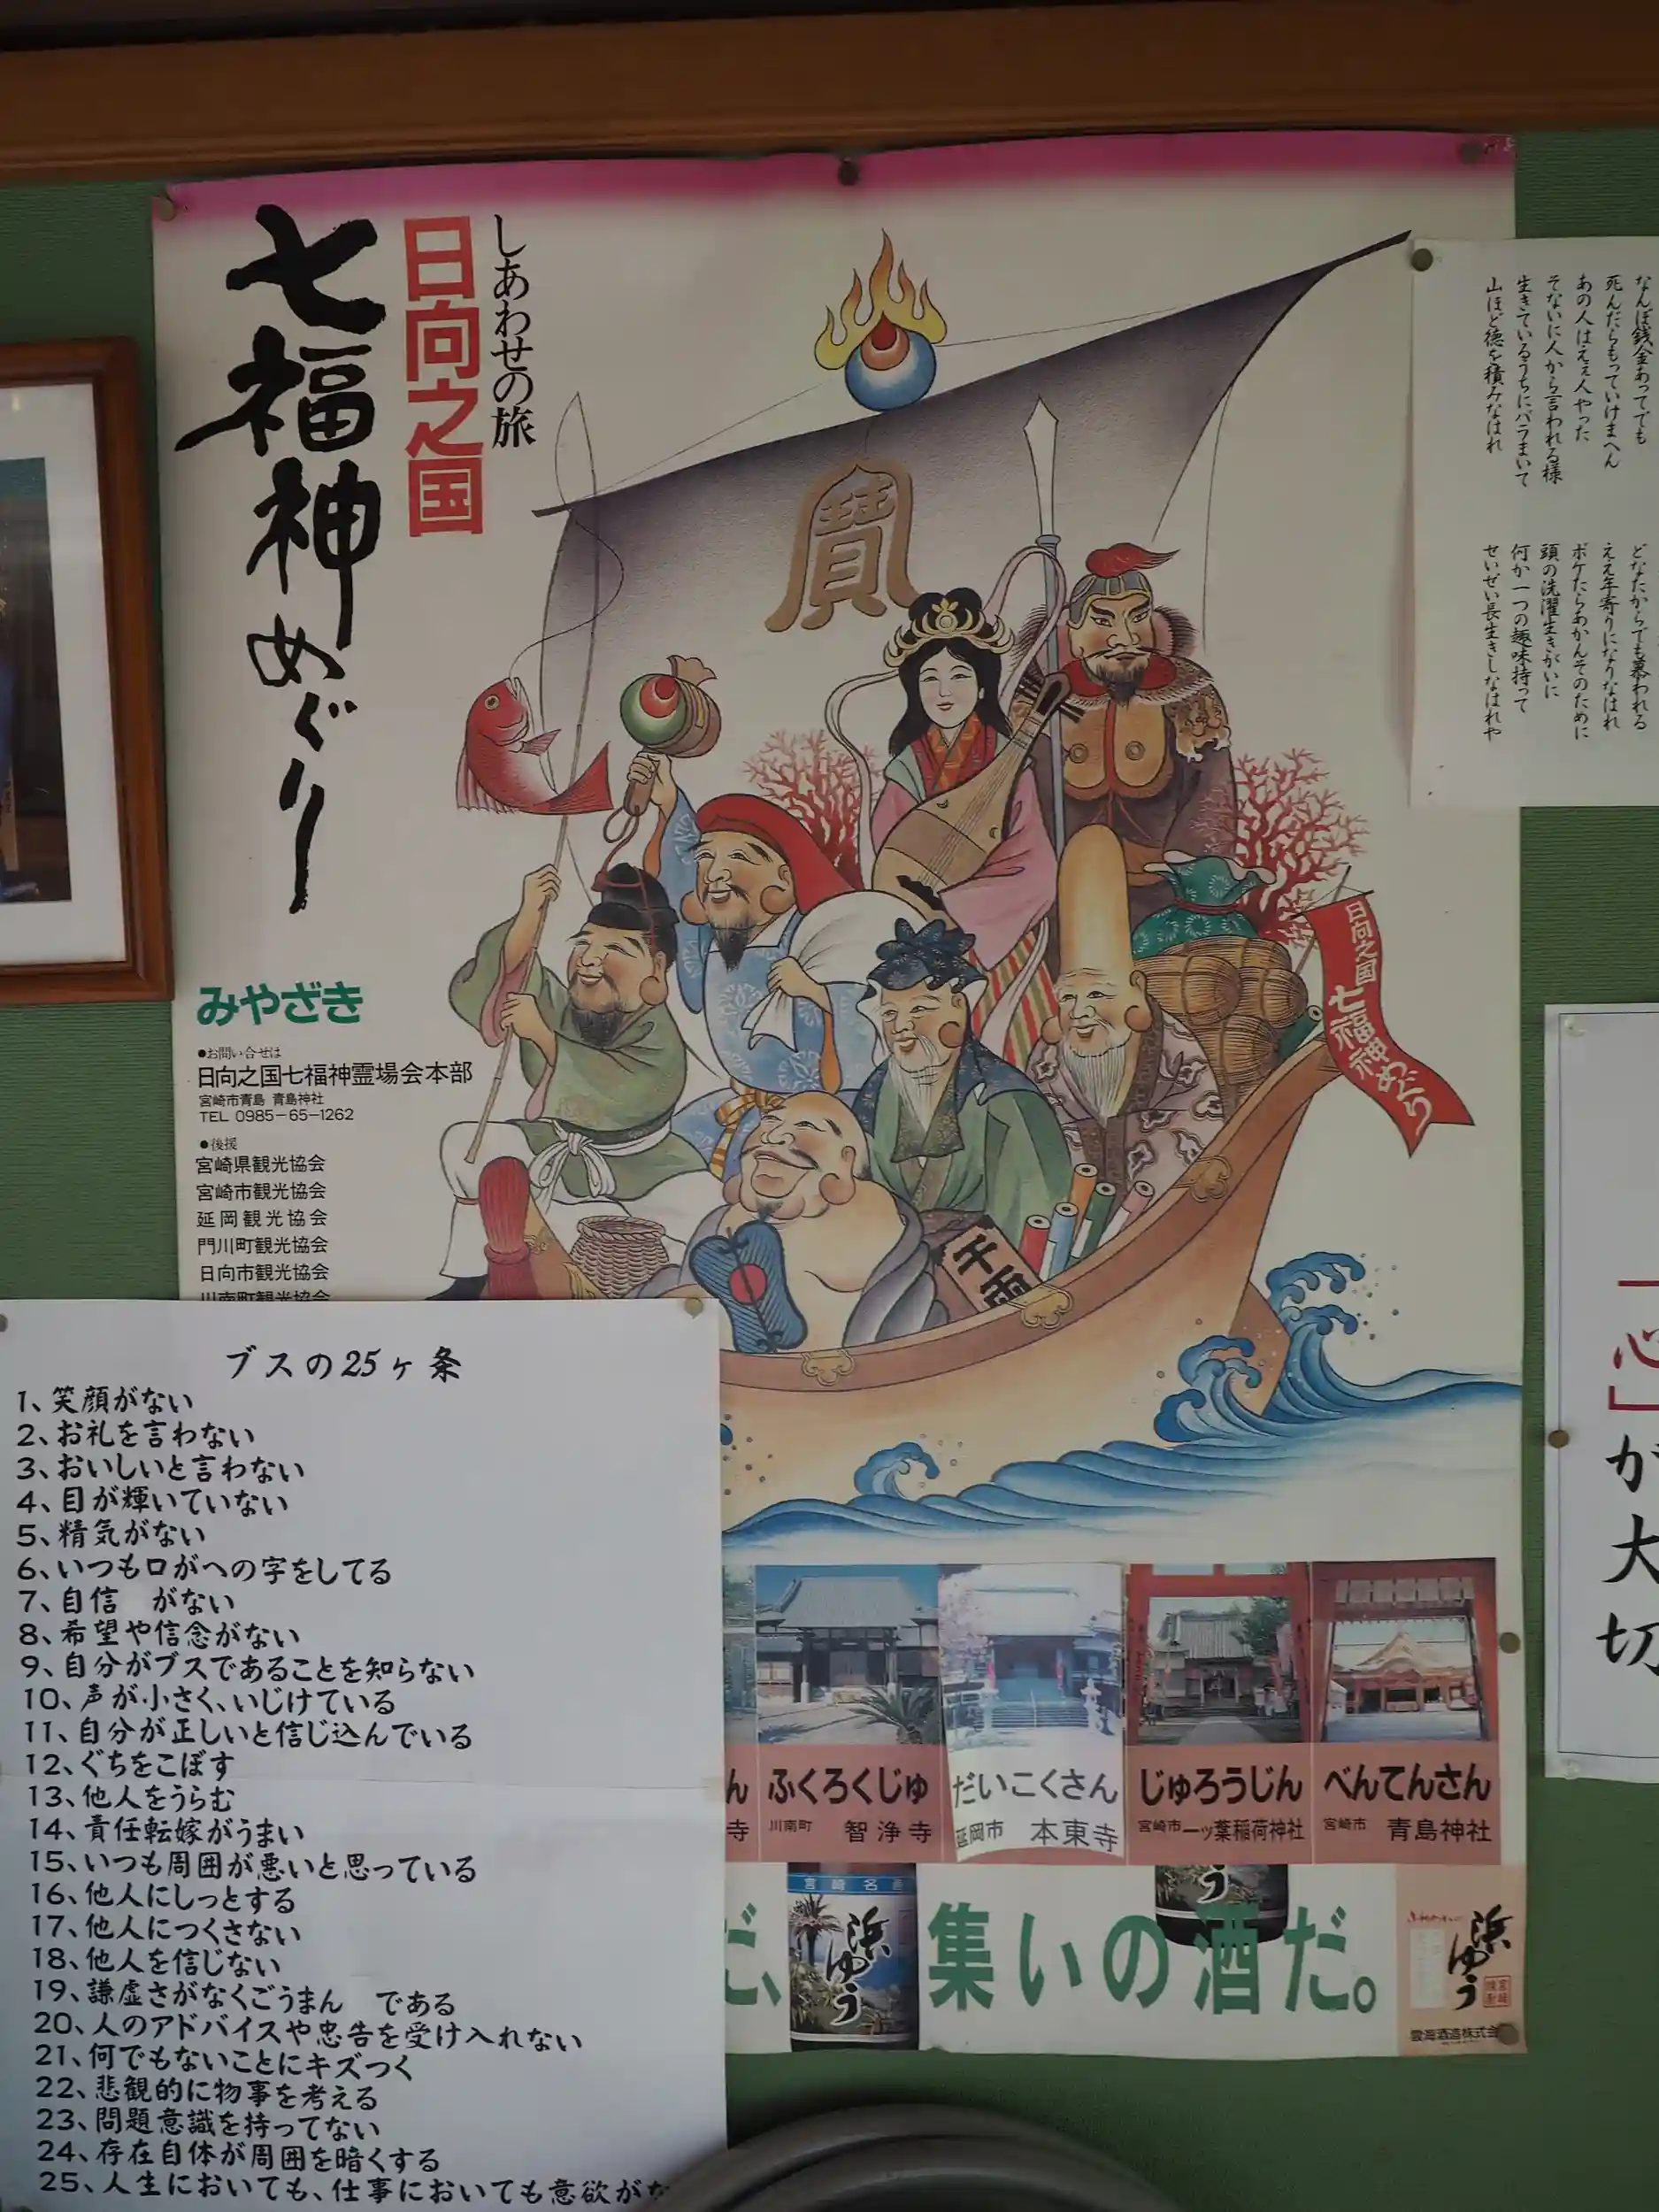 しあわせの旅
日向之国
七福神めぐり
寶
日向之国 七福神めぐり
千両
みやざき
●お問い合せは
日向之国七福神霊場会本部
宮崎市青島 青島神社
TEL 0985-65-1262
●後援
宮崎県観光協会
宮崎市観光協会
延岡観光協会
門川町観光協会
日向市観光協会
川南町観光協会
なんぼ銭金あってでも
死んだらもっていけまへん
あの人はええ人やった
そないに人から言われる様
生きているうちにバラまいて
山ほど徳を積みなはれ
どなたからでも慕われる
ええ年寄りになりなはれ
ボケたらあかんそのために
頭の洗濯生きがいに
何か一つの趣味持って
せいぜい長生きしなはれや
心」が大切
ブスの25ヶ条
1、笑顔がない
2、お礼を言わない
3、おいしいと言わない
4、目が輝いていない
5、精気がない
6、いつも口がへの字をしてる
7、自信　がない
8、希望や信念がない
9、自分がブスであることを知らない
10、声が小さく、いじけている
11、自分が正しいと信じ込んでいる
12、ぐちをこぼす
13、他人をうらむ
14、責任転嫁がうまい
15、いつも周囲が悪いと思っている
16、他人にしっとする
17、他人につくさない
18、他人を信じない
19、謙虚さがなくごうまん　である
20、人のアドバイスや忠告を受け入れない
21、何でもないことにキズつく
22、悲観的に物事を考える
23、問題意識を持ってない
24、存在自体が周囲を暗くする
25、人生においても、仕事においても意欲がな
ん
寺
ふくろくじゅ
川南町 智浄寺
だいこくさん
延岡市 本東寺
じゅろうじん
宮崎市 一ッ葉稲荷神社
べんてんさん
宮崎市 青島神社
だ、集いの酒だ。
宮崎名
浜ゆう
う
浜ゆう
雲海酒造株式会